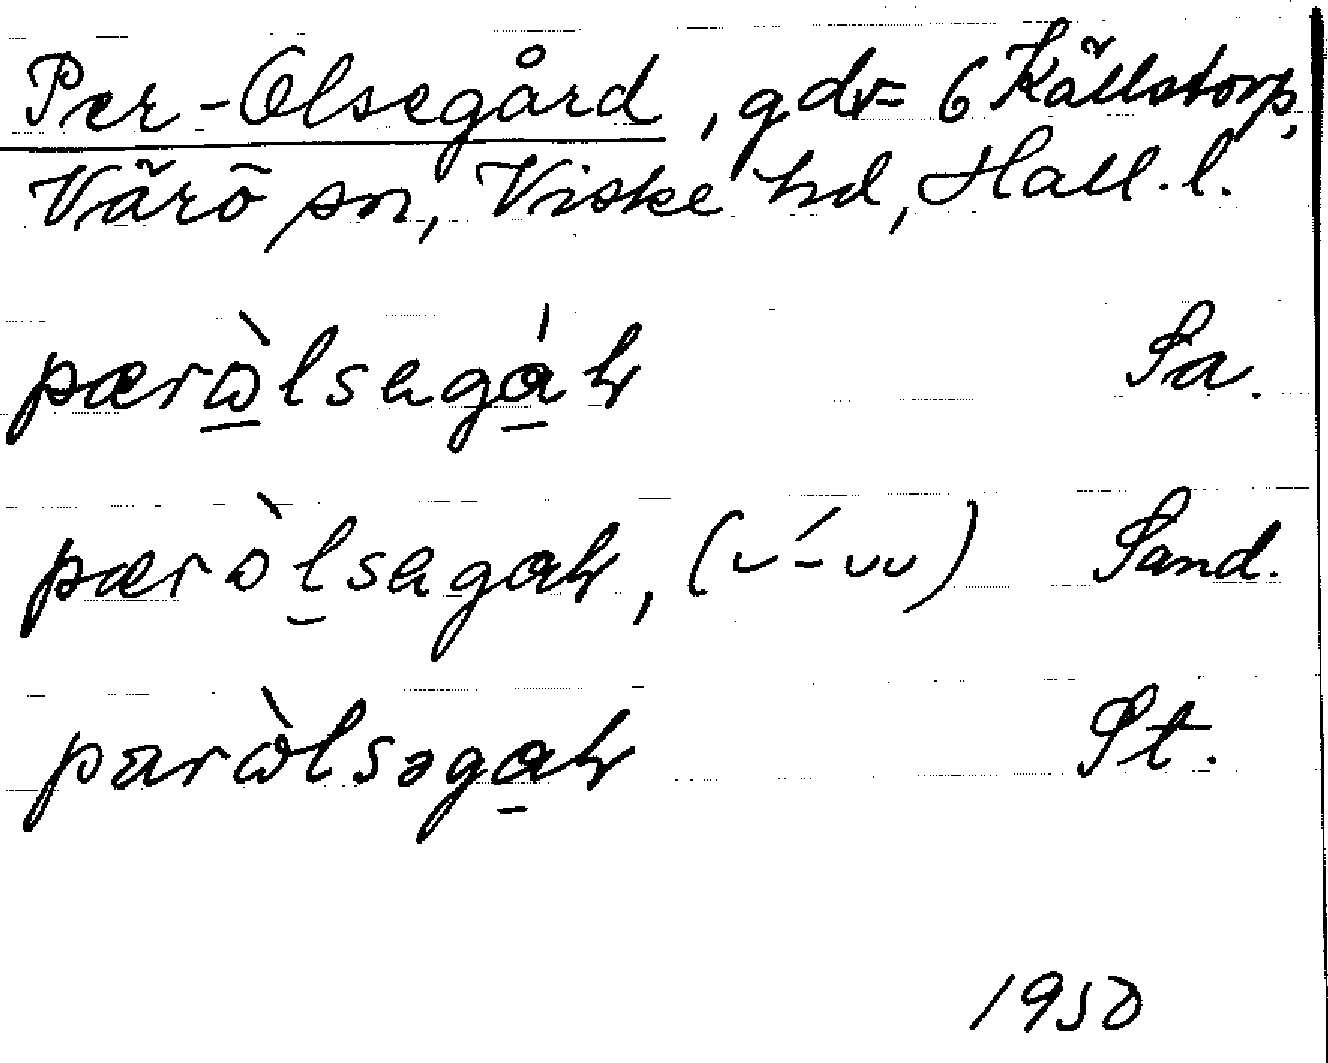 Per-Olsegård, gdr= 6 Källstorp,
Värö sn, Viske hd, Hall. l.
pærὼlsagáɦr Sa.
pæròlsagaɦr, (ᴗ́–ᴗᴗ) Sand.
parὼlsəgaɦr St.
1950